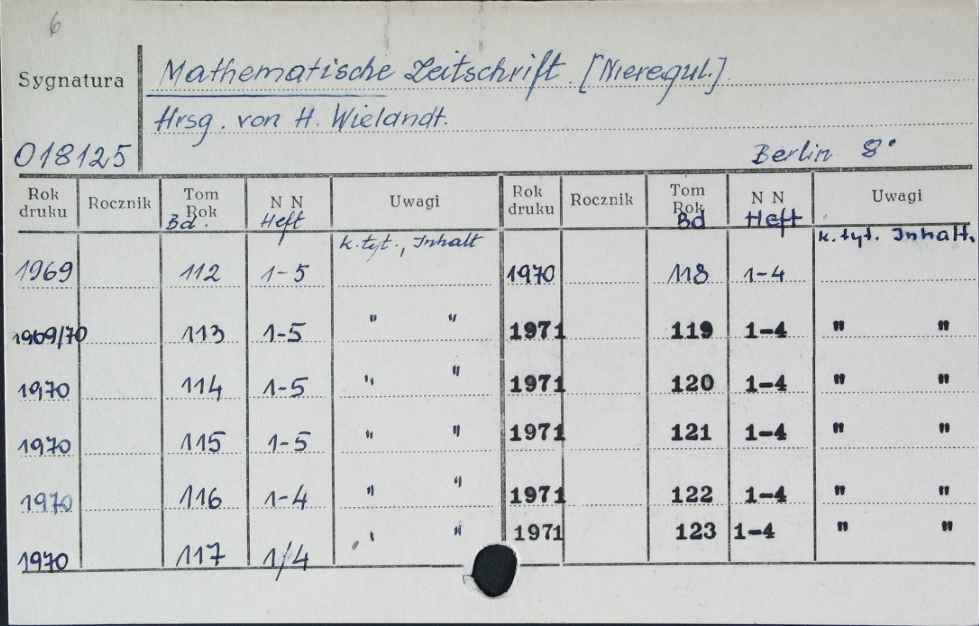 6
Sygnatura
Mathematische Zeitschrift. [Nieregul.]
Hrsg. von H. Wielandt.
018125
Berlin 8°
Rok druku Rocznik Tom Rok Bd. N N Heft Uwagi Rok druku Rocznik Tom Rok Bd N N Heft Uwagi
k. tyt., Inhalt k. tyt. Inhalt.
1969 112 1-5 1970 118 1-4
1969/70 113 1-5 " " 1971 119 1-4 " "
1970 114 1-5 " " 1971 120 1-4 " "
1970 115 1-5 " " 1971 121 1-4 " "
1970 116 1-4 " " 1971 122 1-4 " "
1970 117 1/4 " " 1971 123 1-4 " "